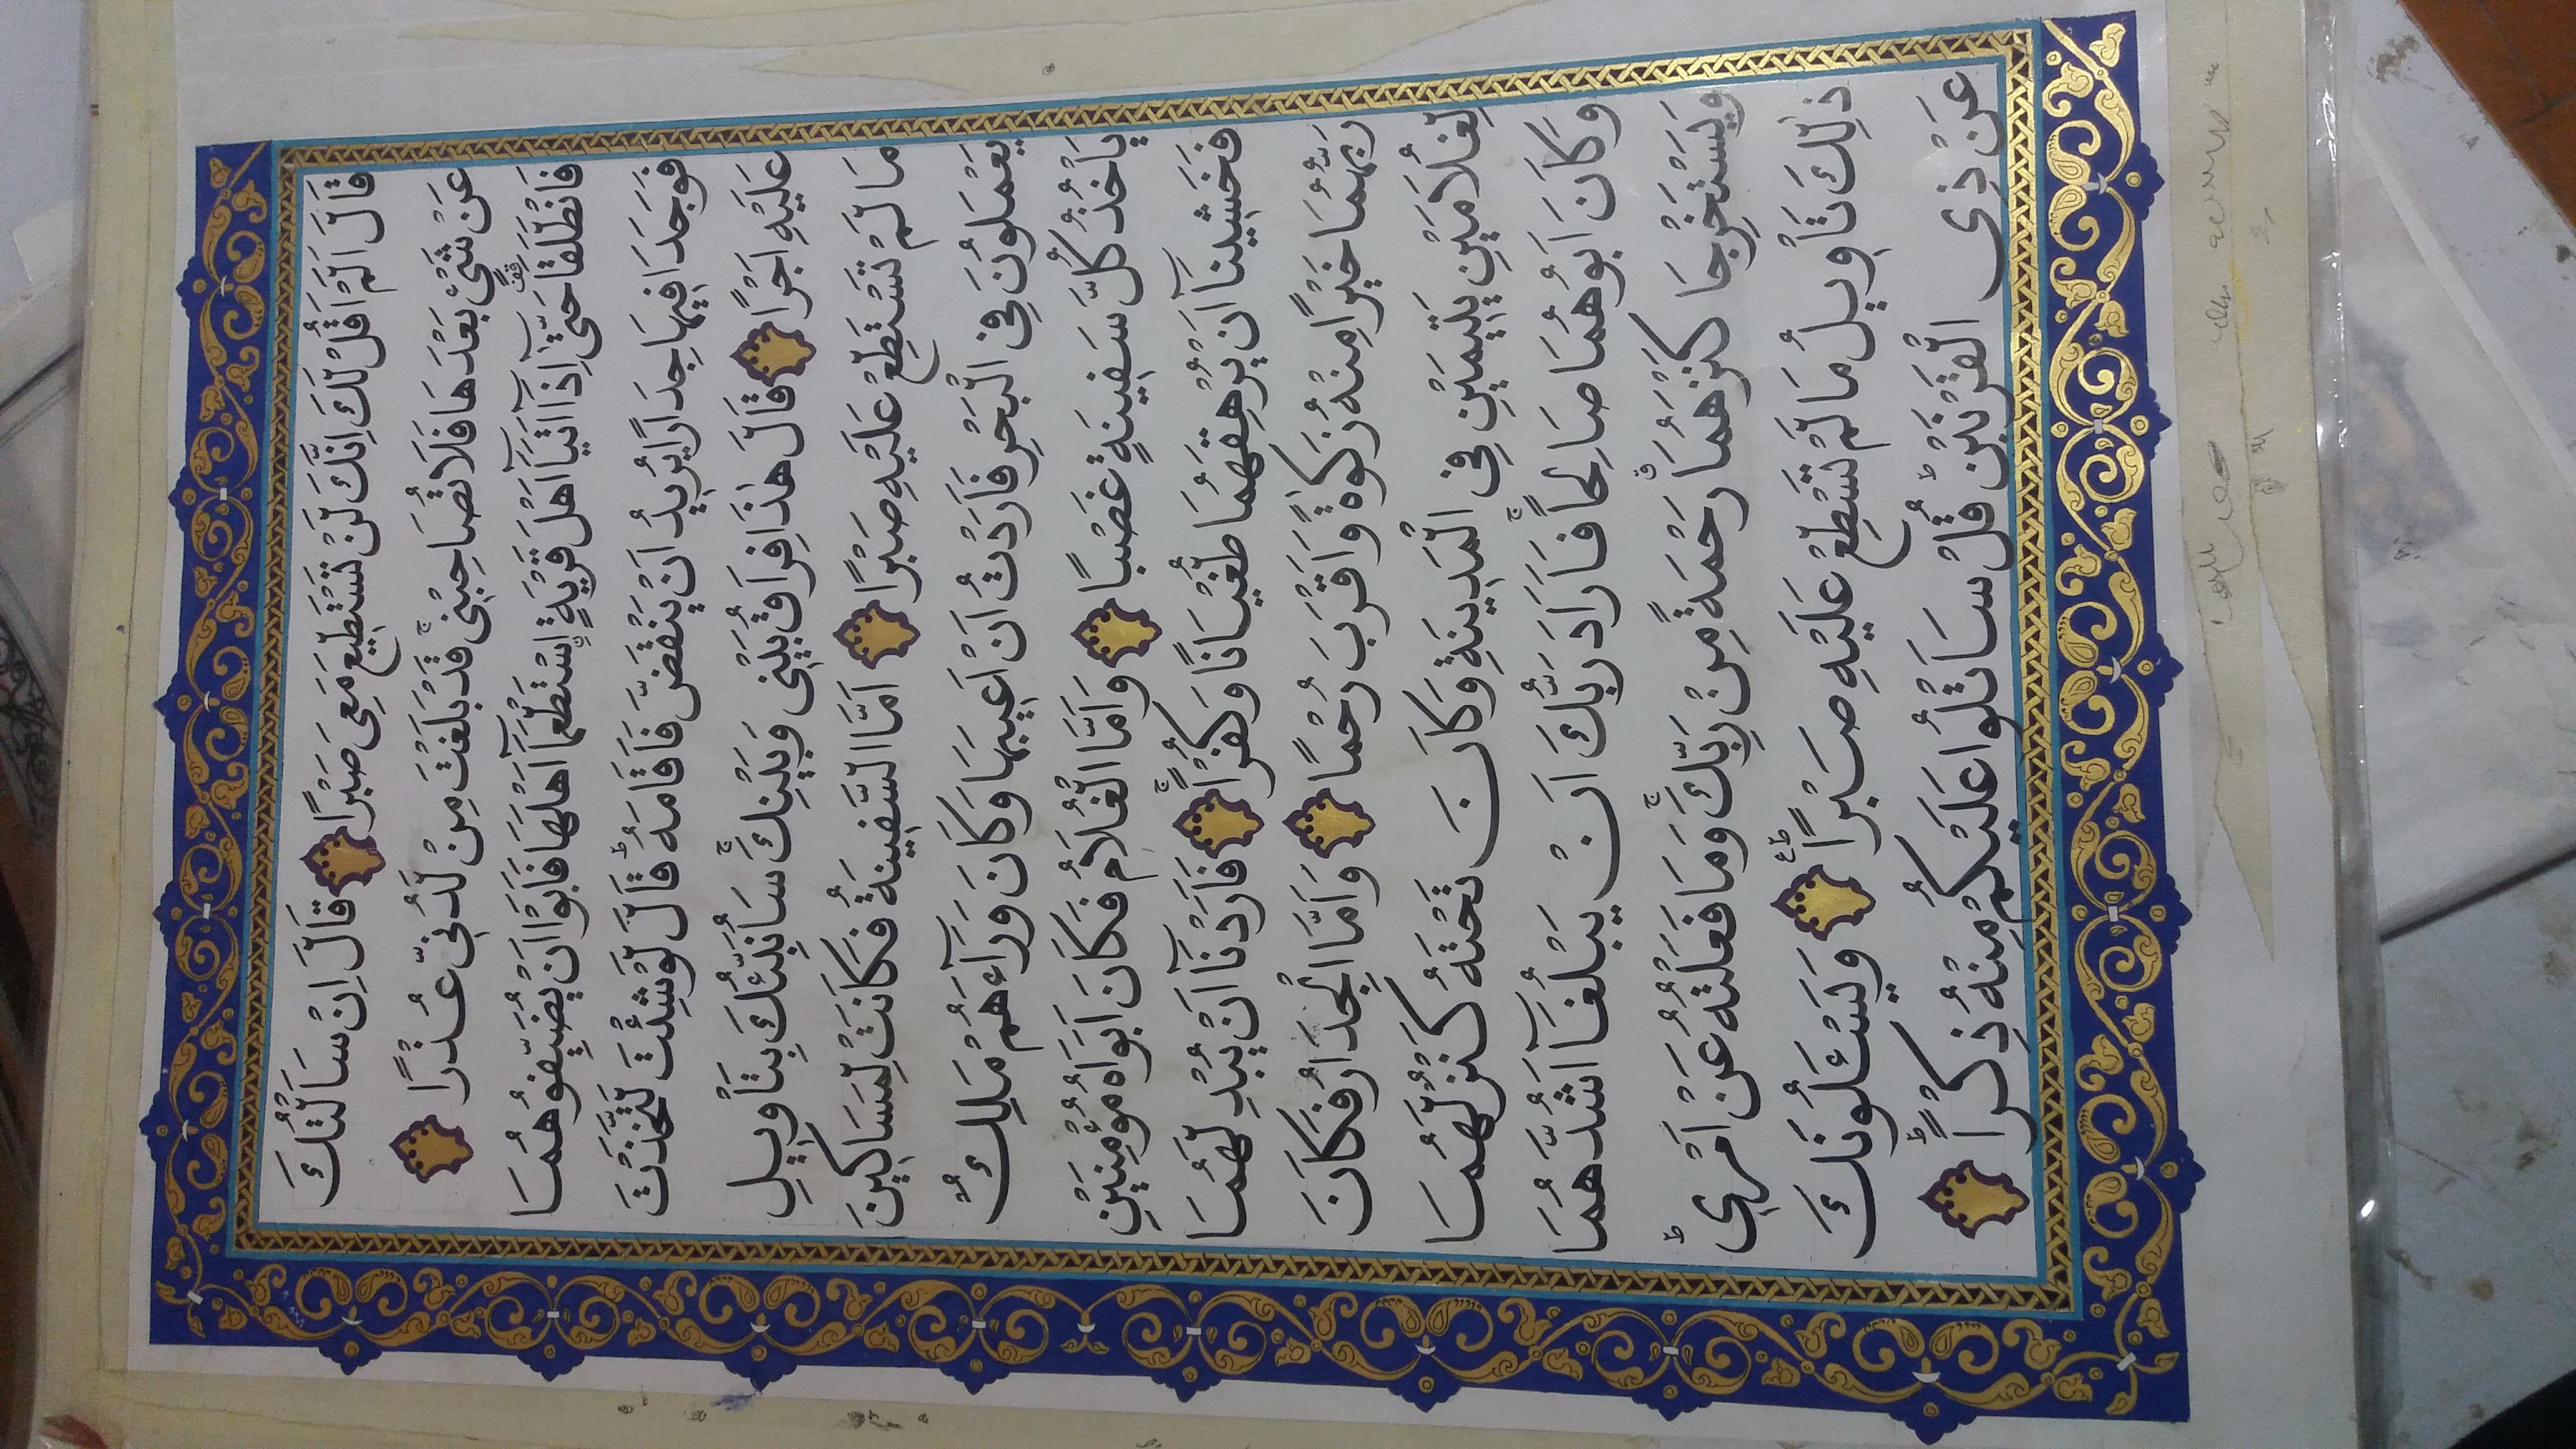 قَالَ اَلَمْ اَقُلْ لَكَ اِنَّكَ لَنْ تَسْتَطِيْعَ مَعِىَ صَبْرًا قَالَ اِنْ سَاَلْتُكَ
عَنْ شَىْءٍ بَعْدَهَا فَلَا تُصَاحِبْنِىْ ۚ قَدْ بَلَغْتَ مِنْ لَّدُنِّىْ عُذْرًا
فَانْطَلَقَا وقفة حَتّٰٓى اِذَآ اَتَيَآ اَهْلَ قَرْيَةِ ِۨاسْتَطْعَمَآ اَهْلَهَا فَاَبَوْا اَنْ يُّضَيِّفُوْهُمَا
فَوَجَدَا فِيْهَا جِدَارًا يُّرِيْدُ اَنْ يَّنْقَضَّ فَاَقَامَهٗ ؕ قَالَ لَوْ شِئْتَ لَتَّخَذْتَ
عَلَيْهِ اَجْرًا قَالَ هٰذَا فِرَاقُ بَيْنِىْ وَبَيْنِكَ ۚ سَاُنَبِّئُكَ بِتَاْوِيْلِ
مَا لَمْ تَسْتَطِعْ عَلَيْهِ صَبْرًا اَمَّا السَّفِيْنَةُ فَكَانَتْ لِمَسَاكِيْنَ
يَعْمَلُوْنَ فِى الْبَحْرِ فَاَرَدْتُّ اَنْ اَعِيْبَهَا وَكَانَ وَرَآءَهُمْ مَّلِكٌ
يَّاْخُذُ كُلَّ سَفِيْنَةٍ غَصْبًا وَاَمَّا الْغُلَامُ فَكَانَ اَبَوَاهُ مُؤْمِنَيْنِ
فَخَشِيْنَآ اَنْ يُّرْهِقَهُمَا طُغْيَانًا وَّكُفْرًا ۚ فَاَرَدْنَآ اَنْ يُّبْدِلَهُمَا
رَبُّهُمَا خَيْرًا مِّنْهُ زَكٰوةً وَّاَقْرَبَ رُحْمًا وَاَمَّا الْجِدَارُ فَكَانَ
لِغُلَامَيْنِ يَتِيْمَيْنِ فِى الْمَدِيْنَةِ وَكَانَ تَحْتَهٗ كَنْزٌ لَّهُمَا
وَكَانَ اَبُوْهُمَا صَالِحًا ۚ فَاَرَادَ رَبُّكَ اَنْ يَّبْلُغَآ اَشُدَّهُمَا
وَيَسْتَخْرِجَا كَنْزَهُمَا ۖ رَحْمَةً مِّنْ رَّبِّكَ ۚ وَمَا فَعَلْتُهٗ عَنْ اَمْرِىْ ؕ
ذٰلِكَ تَاْوِيْلُ مَا لَمْ تَسْطِعْ عَلَيْهِ صَبْرًا وَيَسْـَٔلُوْنَكَ
عَنْ ذِى الْقَرْنَيْنِ ؕ قُلْ سَاَتْلُوْا عَلَيْكُمْ مِّنْهُ ذِكْرًا ؕ